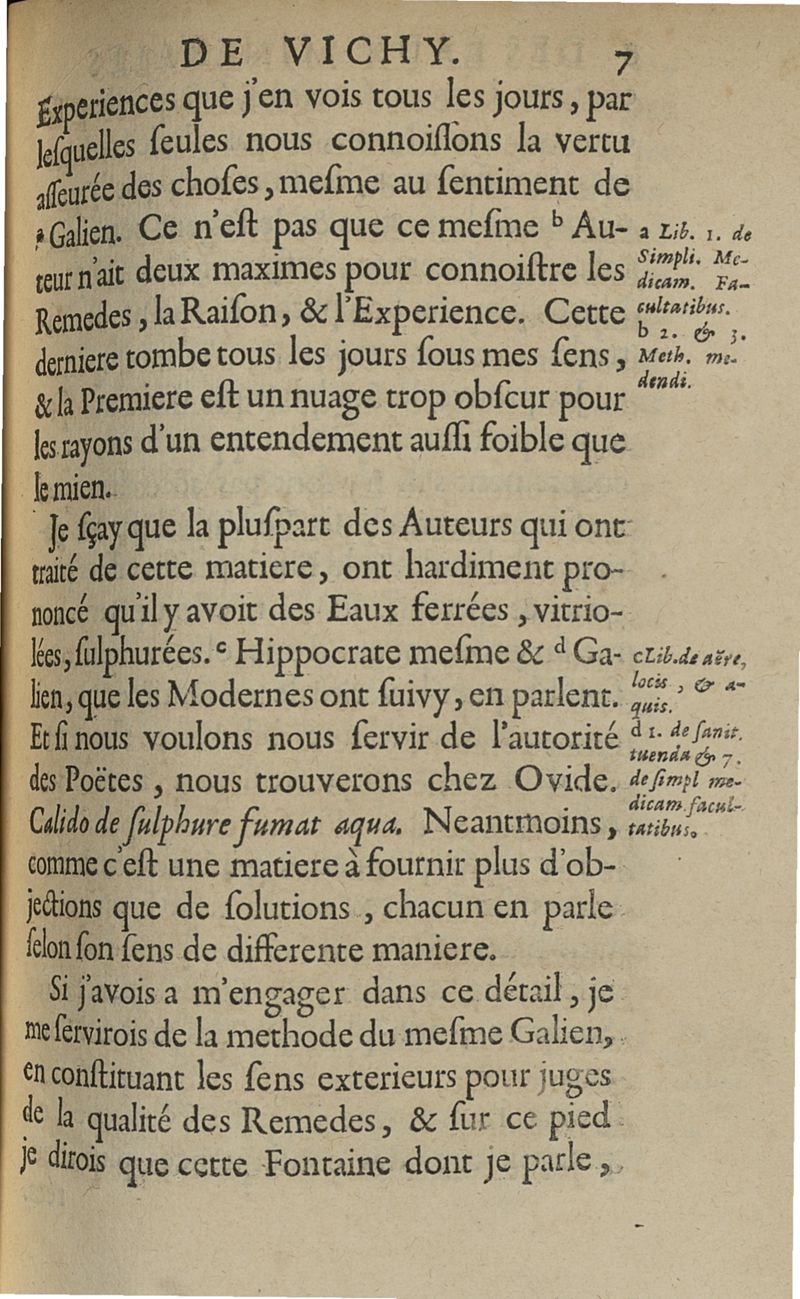 DE VICHY. 7
Experiences que j'en vois tous les jours, par
leſquelles ſeules nous connoiſſons la vertu
aſſeurée des choſes, meſme au ſentiment de
a Galien. Ce n'eſt pas que ce meſme b Au-
teur n'ait deux maximes pour connoiſtre les
Remedes, la Raiſon, & l'Experience. Cette
derniere tombe tous les jours ſous mes ſens,
& la Premiere eſt un nuage trop obſcur pour
les rayons d'un entendement auſſi foible que
le mien.
a Lib. 1. de
Simpli. Me-
dicam. Fa-
cultatibus.
b 2. & 3.
Meth. me-
dendi.
Je ſçay que la pluſpart des Auteurs qui ont
traité de cette matiere, ont hardiment pro-
noncé qu'il y avoit des Eaux ferrées, vitrio-
lées, ſulphurées. c Hippocrate meſme & d Ga-
lien, que les Modernes ont ſuivy, en parlent.
Et ſi nous voulons nous ſervir de l'autorité
des Poëtes, nous trouverons chez Ovide.
Calido de ſulphure fumat aqua. Neantmoins,
comme c'eſt une matiere à fournir plus d'ob-
jections que de ſolutions, chacun en parle
ſelon ſon ſens de differente maniere.
c Lib. de aëre,
locis, & a-
quis.
d 1. de ſanit.
tuenda & 7.
de ſimpl me-
dicam facul-
tatibus.
Si j'avois a m'engager dans ce détail, je
me ſervirois de la methode du meſme Galien,
en conſtituant les ſens exterieurs pour juges
de la qualité des Remedes, & ſur ce pied
je dirois que cette Fontaine dont je parle,